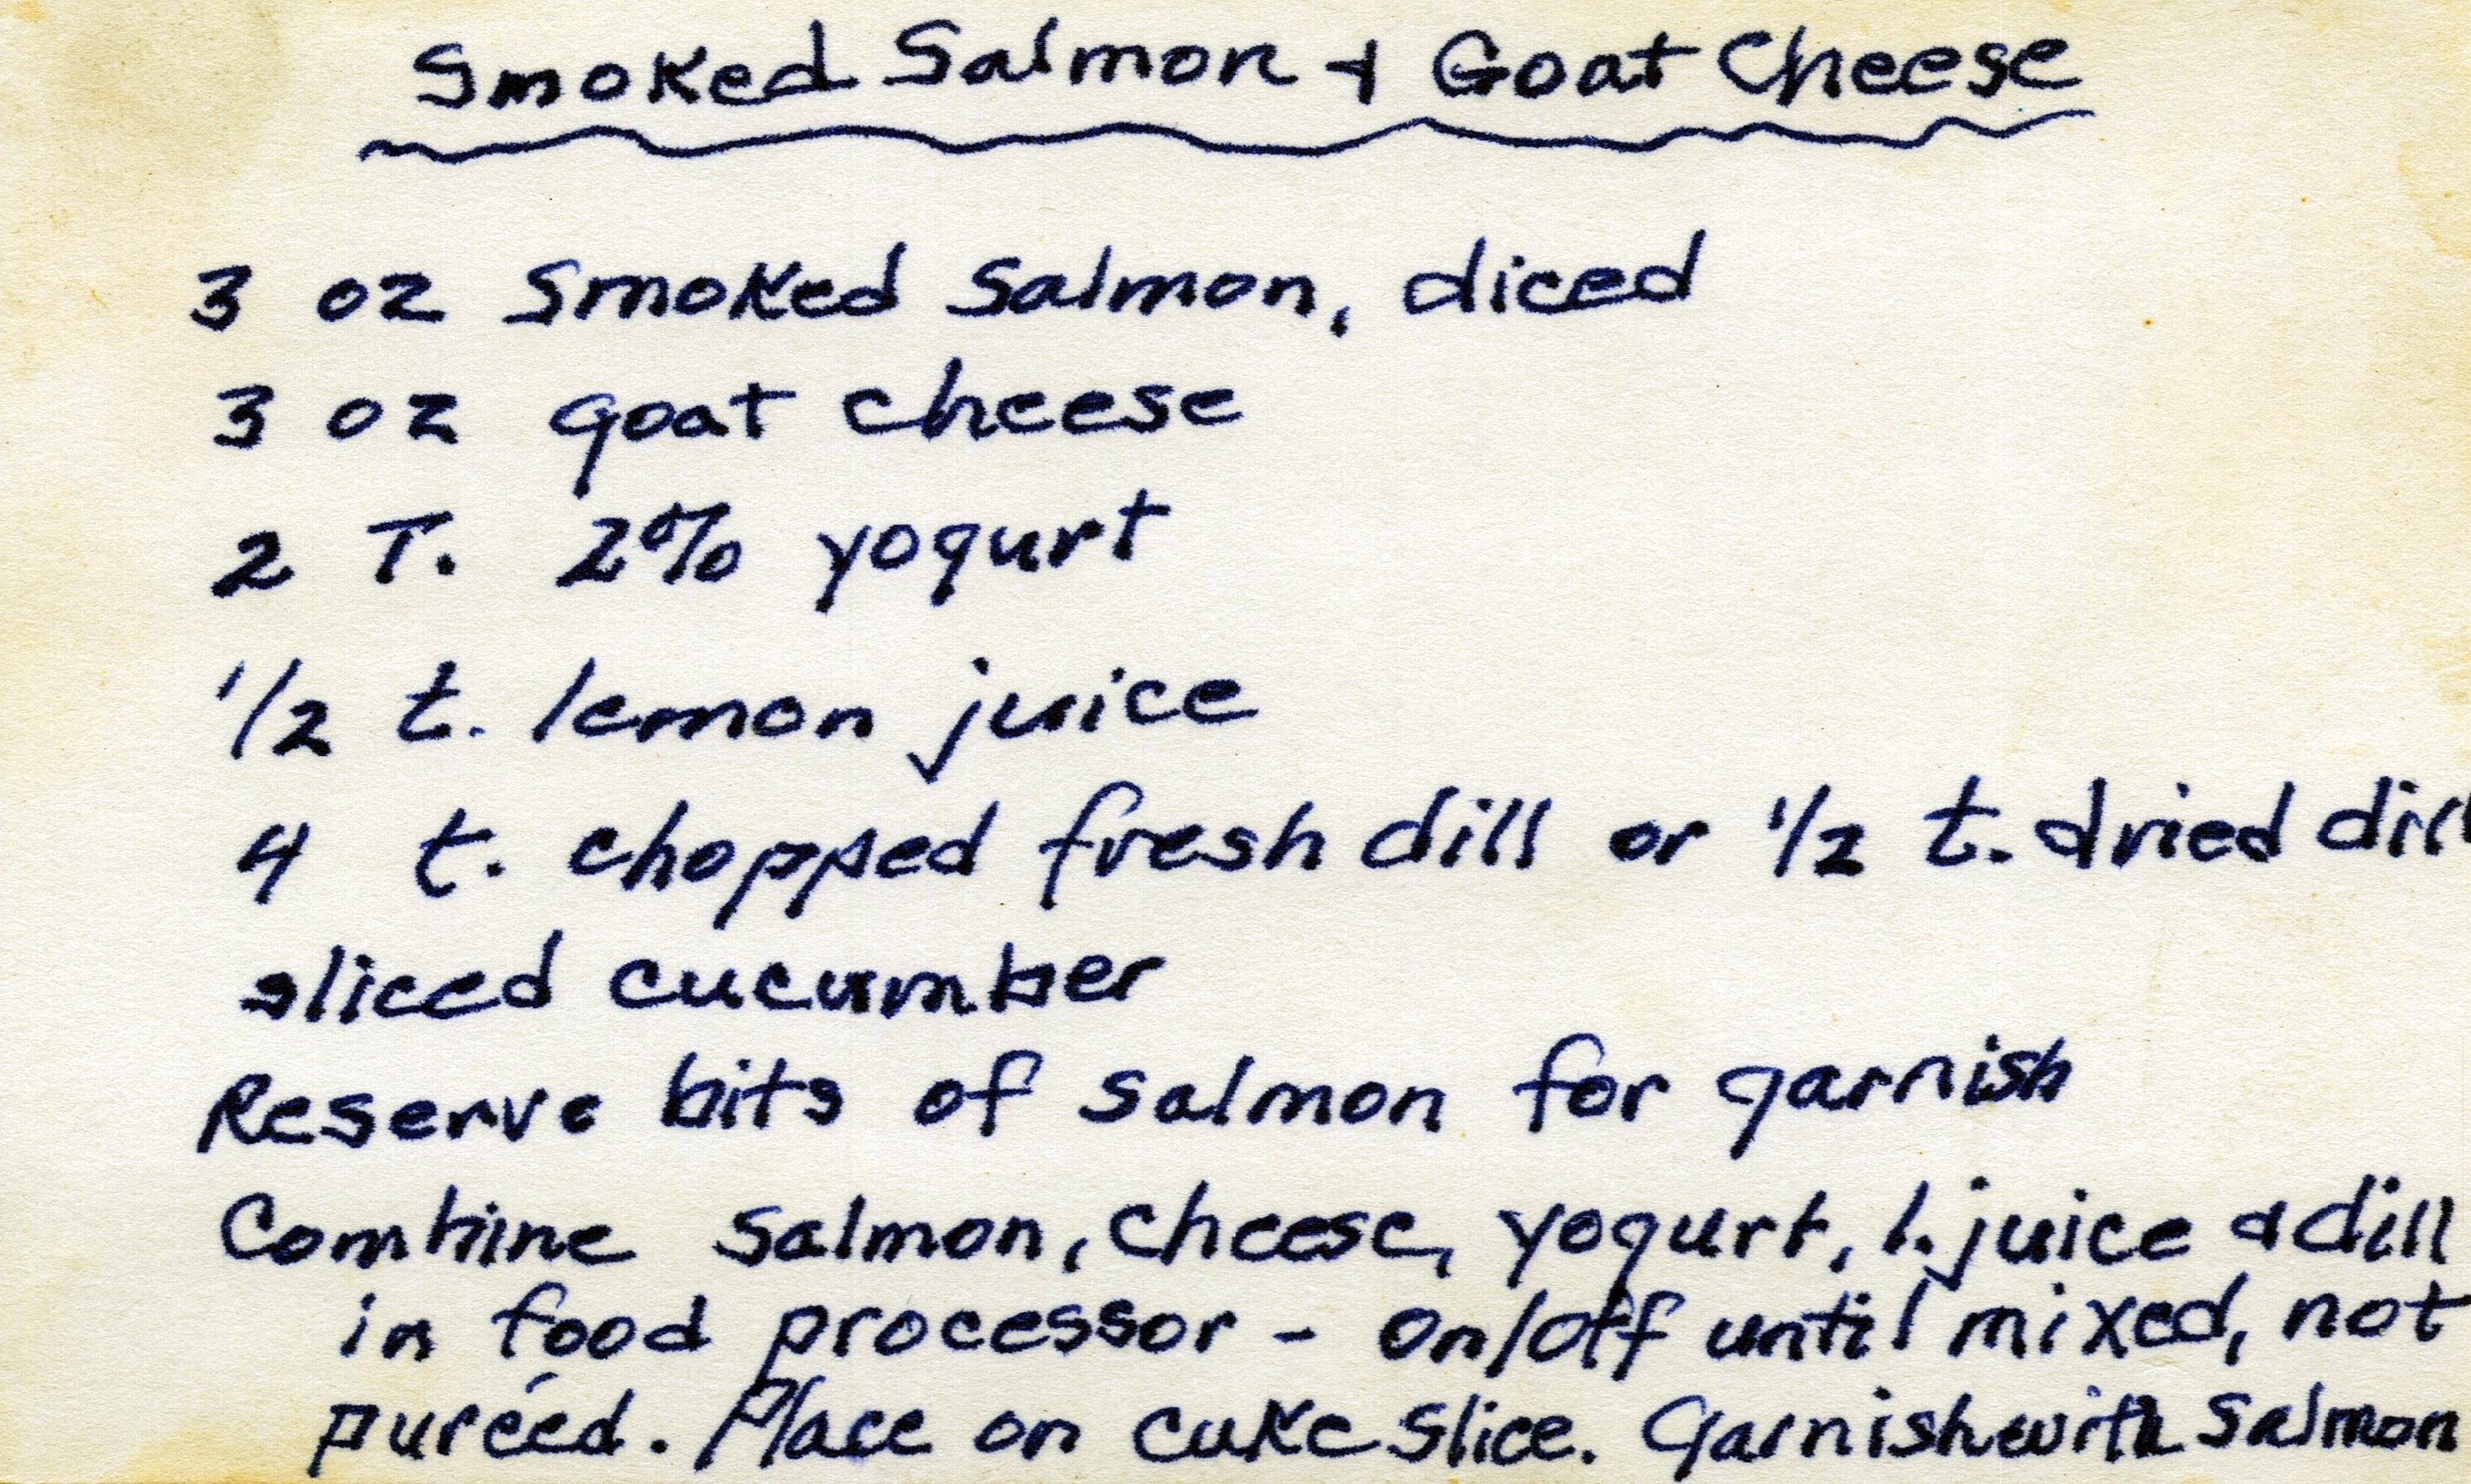 Smoked Salmon & Goat Cheese
3 oz smoked salmon, diced
3 oz goat cheese
2 T. 2% yogurt
1/2 t. lemon juice
4 t. chopped fresh dill or 1/2 t. dried dill
sliced cucumber
Reserve bits of salmon for garnish
Combine salmon, cheese, yogurt, l. juice & dill
in food processor - on/off until mixed, not
puréed. Place on cuke slice. Garnish with salmon